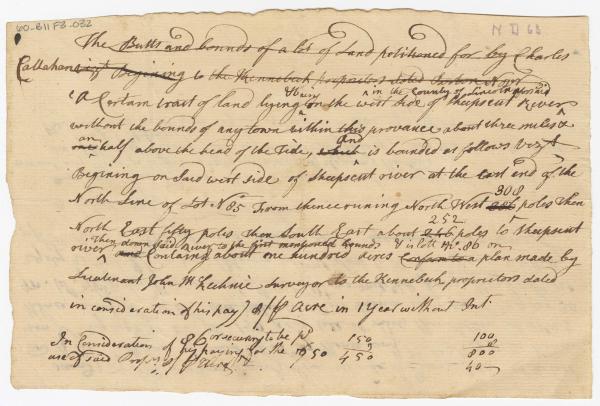 60-B11F3-032
N D 68
The Butts and bounds of a lot of Land petitioned for by Charles
Callahan Begining to the Kennebeck proprietors dated
A Certain tract of land lying & being on the west side of Sheepscut River in the County of Lincoln aforesaid
without the bounds of any town within this provance about three miles &
an half above the head of the Tide, and is bounded as follows vizt
Begining on Said west side of Sheepscut river at the east end of the
North Line of Lot No 85 From thence runing North West 308 poles then
North East fifty poles then South East about 252 poles to Sheepscut
river then down said River to the first mentioned bounds & is lott No. 86 on
and Contains about one hundred acres a plan made by
Lieutenant John McKechnie Surveyor to the Kennebeck proprietors dated
in consideration of his pay 8/ p Acre in 1 year without Int
In Consideration of £6 or securing to be pd 150 100
use of said Proprs by paying for the 50 450 800
8/ p Acre 40